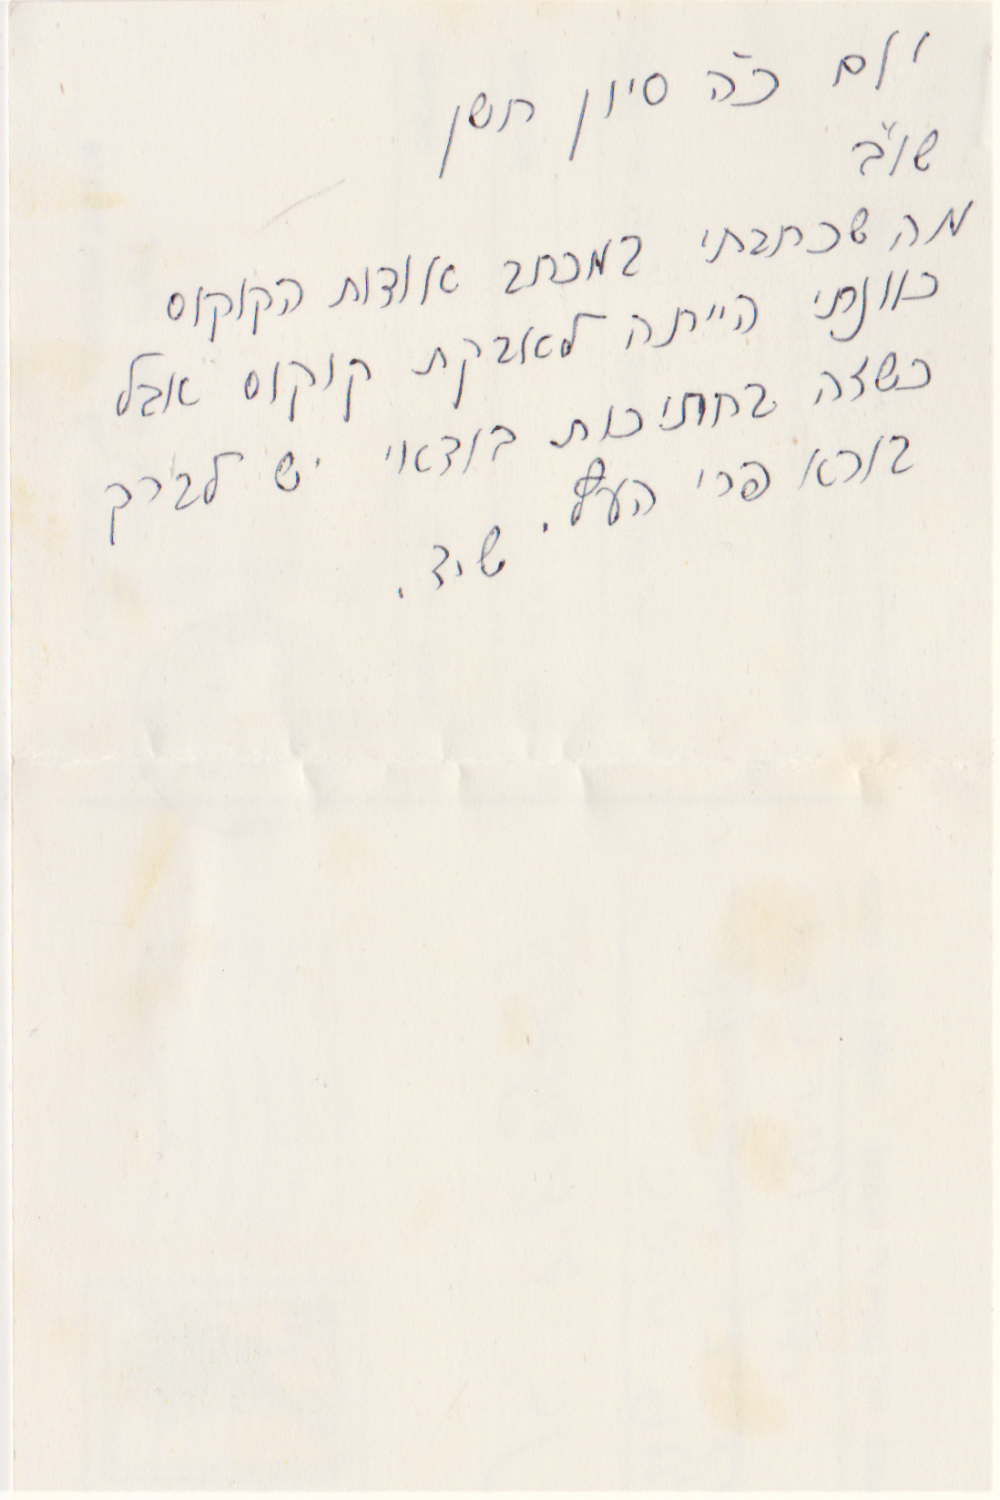 יום כ"ה סיון תשן
שו"ב
מה שכתבתי במכתב אודות הקוקוס
כוונתי הייתה לאבקת קוקוס אבל
כשזה בחתיכות בודאוי יש לברך
בורא פרי העץ.